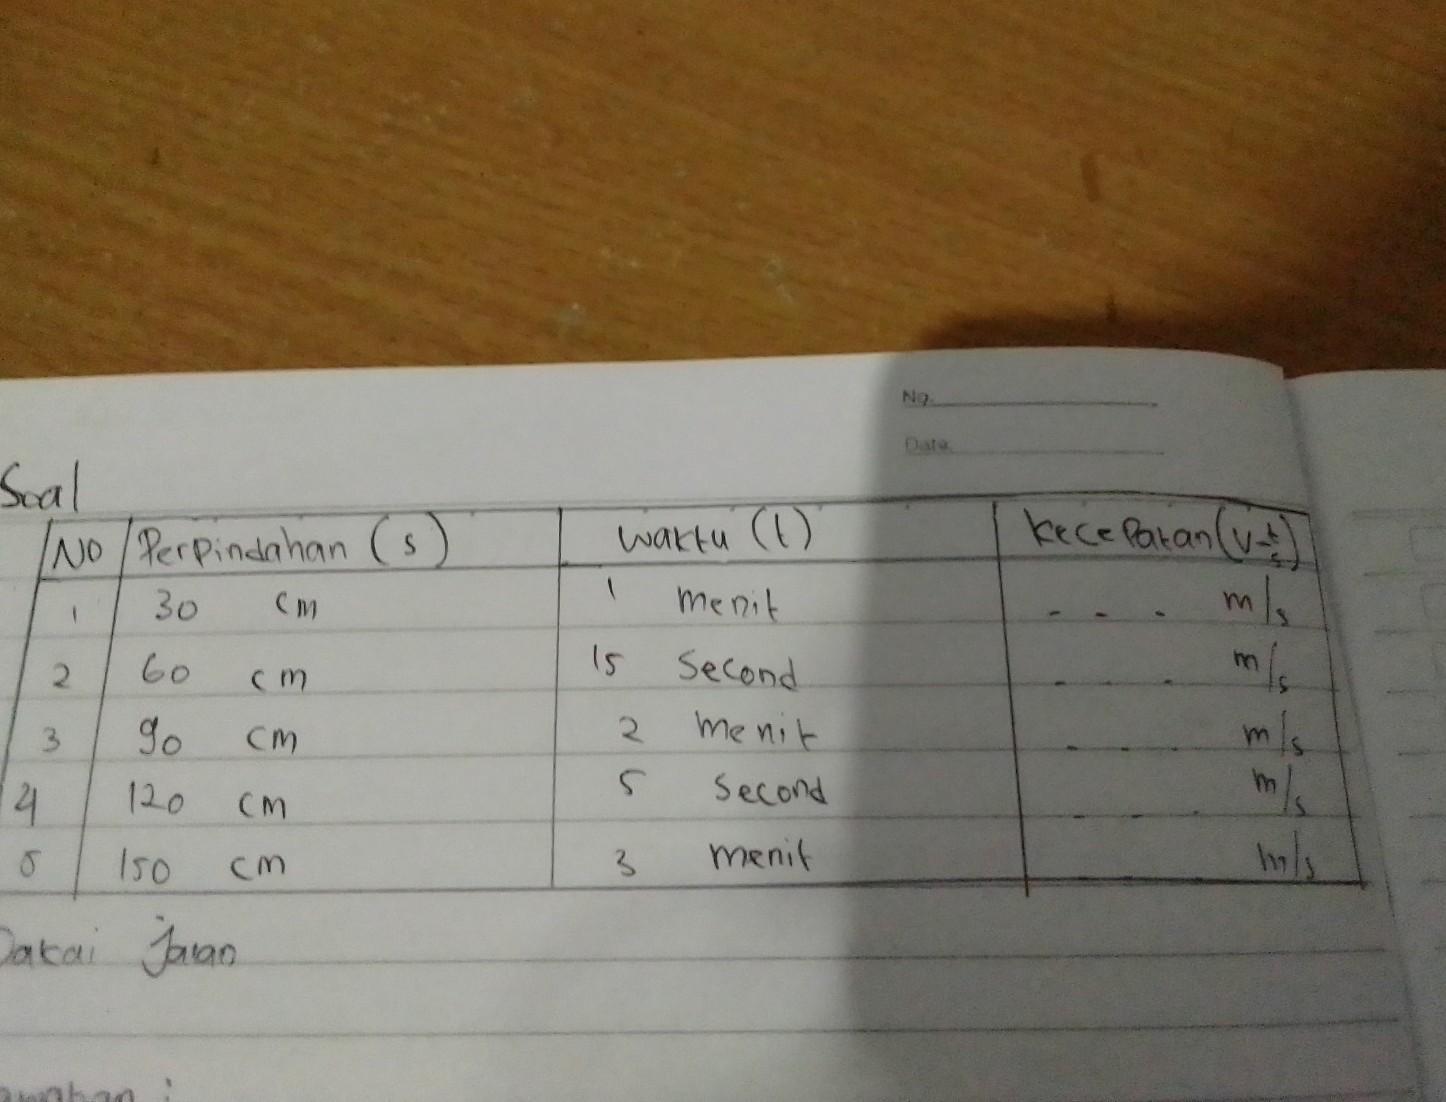 No.
Date.
Soal
No Perpindahan (s) waktu (t) kecepatan (v=t/s)
1 30 cm 1 menit - - - m/s
2 60 cm 15 Second - - - m/s
3 90 cm 2 menit - - - m/s
4 120 cm 5 Second - - - m/s
5 150 cm 3 menit m/s
Pakai